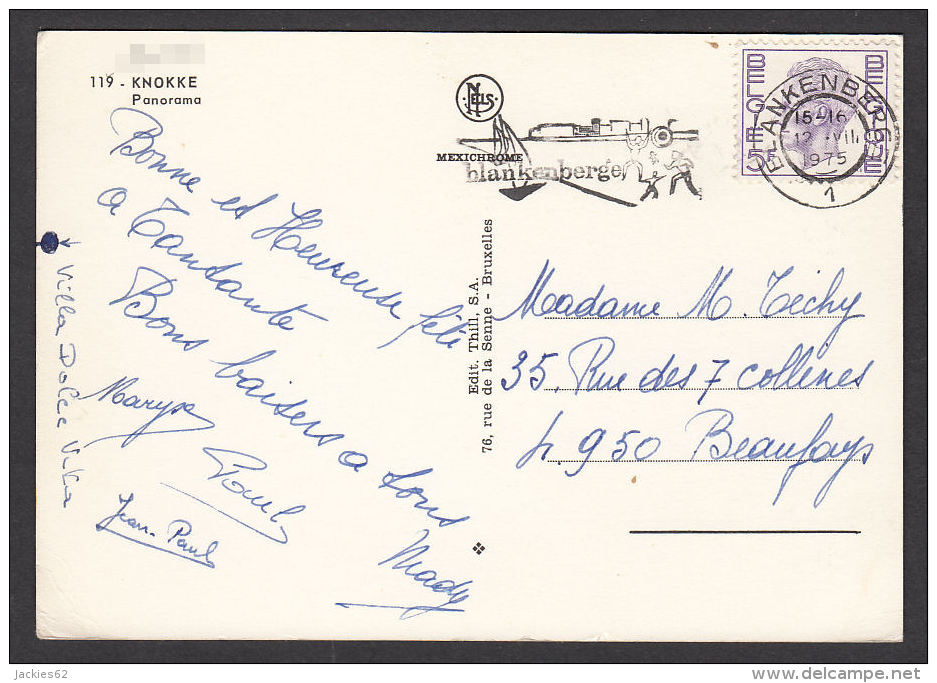 119 - KNOKKE
Panorama
NELS
MEXICHROME
blankenberge
BELGIE
BELGIQUE
5F
BLANKENBERGE
15-16
12 VII
1975
1
Bonne et Heureuse fête
a Tantante
Bons baisers a tous
Maryse
Paul
Jean-Paul
Mady
Villa Dolce Vita
Edit. Thill, S.A.
76, rue de la Senne - Bruxelles
Madame M. Tichy
35, Rue des 7 collines
4.950 Beaufays
Jackies62
www.delcampe.net